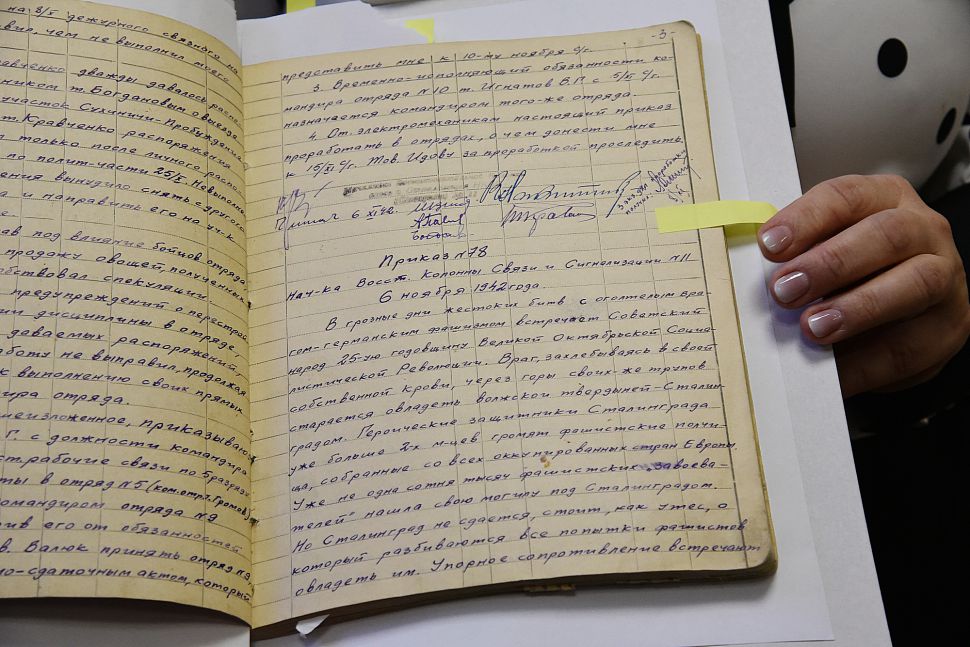 на 8/X дежурного связного на
вил, чем не выполнил моего
равченко дважды давалось распо
ником т. Богдановым о выезде
участок Сухиничи-Пробуждение
т. Кравченко распоряжения
и только после личного распо
по полит-части 25/X. Невыполне
ения вынудило снять с другого
а и направить его на уч-к
ав под влияние бойцов отряда
продажу овощей, полученных
обствовал спекуляции.
предупреждений о перестрой
ии дисциплины в отряде,
даваемых распоряжений
аботу не выправил, продолжая
к выполнению своих прямых
ира отряда.
шеизложенное, приказываю
Г. с должности командира
ст. рабочие связи по 5 разряду
ты в отряд №5 (ком. отр. т. Громов)
командиром отряда №9
ив его от обязанностей
в. Валюк принять отряд №9
но-сдаточным актом, который
-3-
представить мне к 10-му ноября с/г.
3. Временно-исполняющий обязанности ко-
мандира отряда №10 т. Игнатов В.П. с 5/XI с/г.
назначается командиром того-же отряда.
4. От электромеханикам настоящий приказ
проработать в отрядах, о чем донести мне
к 15/XI с/г. Тов. Идову за проработкой проследить.
6 XI 42.
Приказ №78
Нач-ка Восст. Колонны Связи и Сигнализации №11
6 ноября 1942 года.
В грозные дни жестоких битв с оголтелым вра-
гом-германским фашизмом встречает Советский
народ 25-ую годовщину Великой Октябрьской Социа-
листической Революции. Враг, захлебываясь в своей
собственной крови, через горы своих-же трупов
старается овладеть волжской твердыней-Сталин-
градом. Героические защитники Сталинграда
уже больше 2-х м-цев громят фашистские полчи-
ща, собранные со всех оккупированных стран Европы.
Уже не одна сотня тысяч фашистских „завоева-
телей" нашла свою могилу под Сталинградом.
Но Сталинград не сдается, стоит, как утес, о
который разбиваются все попытки фашистов
овладеть им. Упорное сопротивление встречают